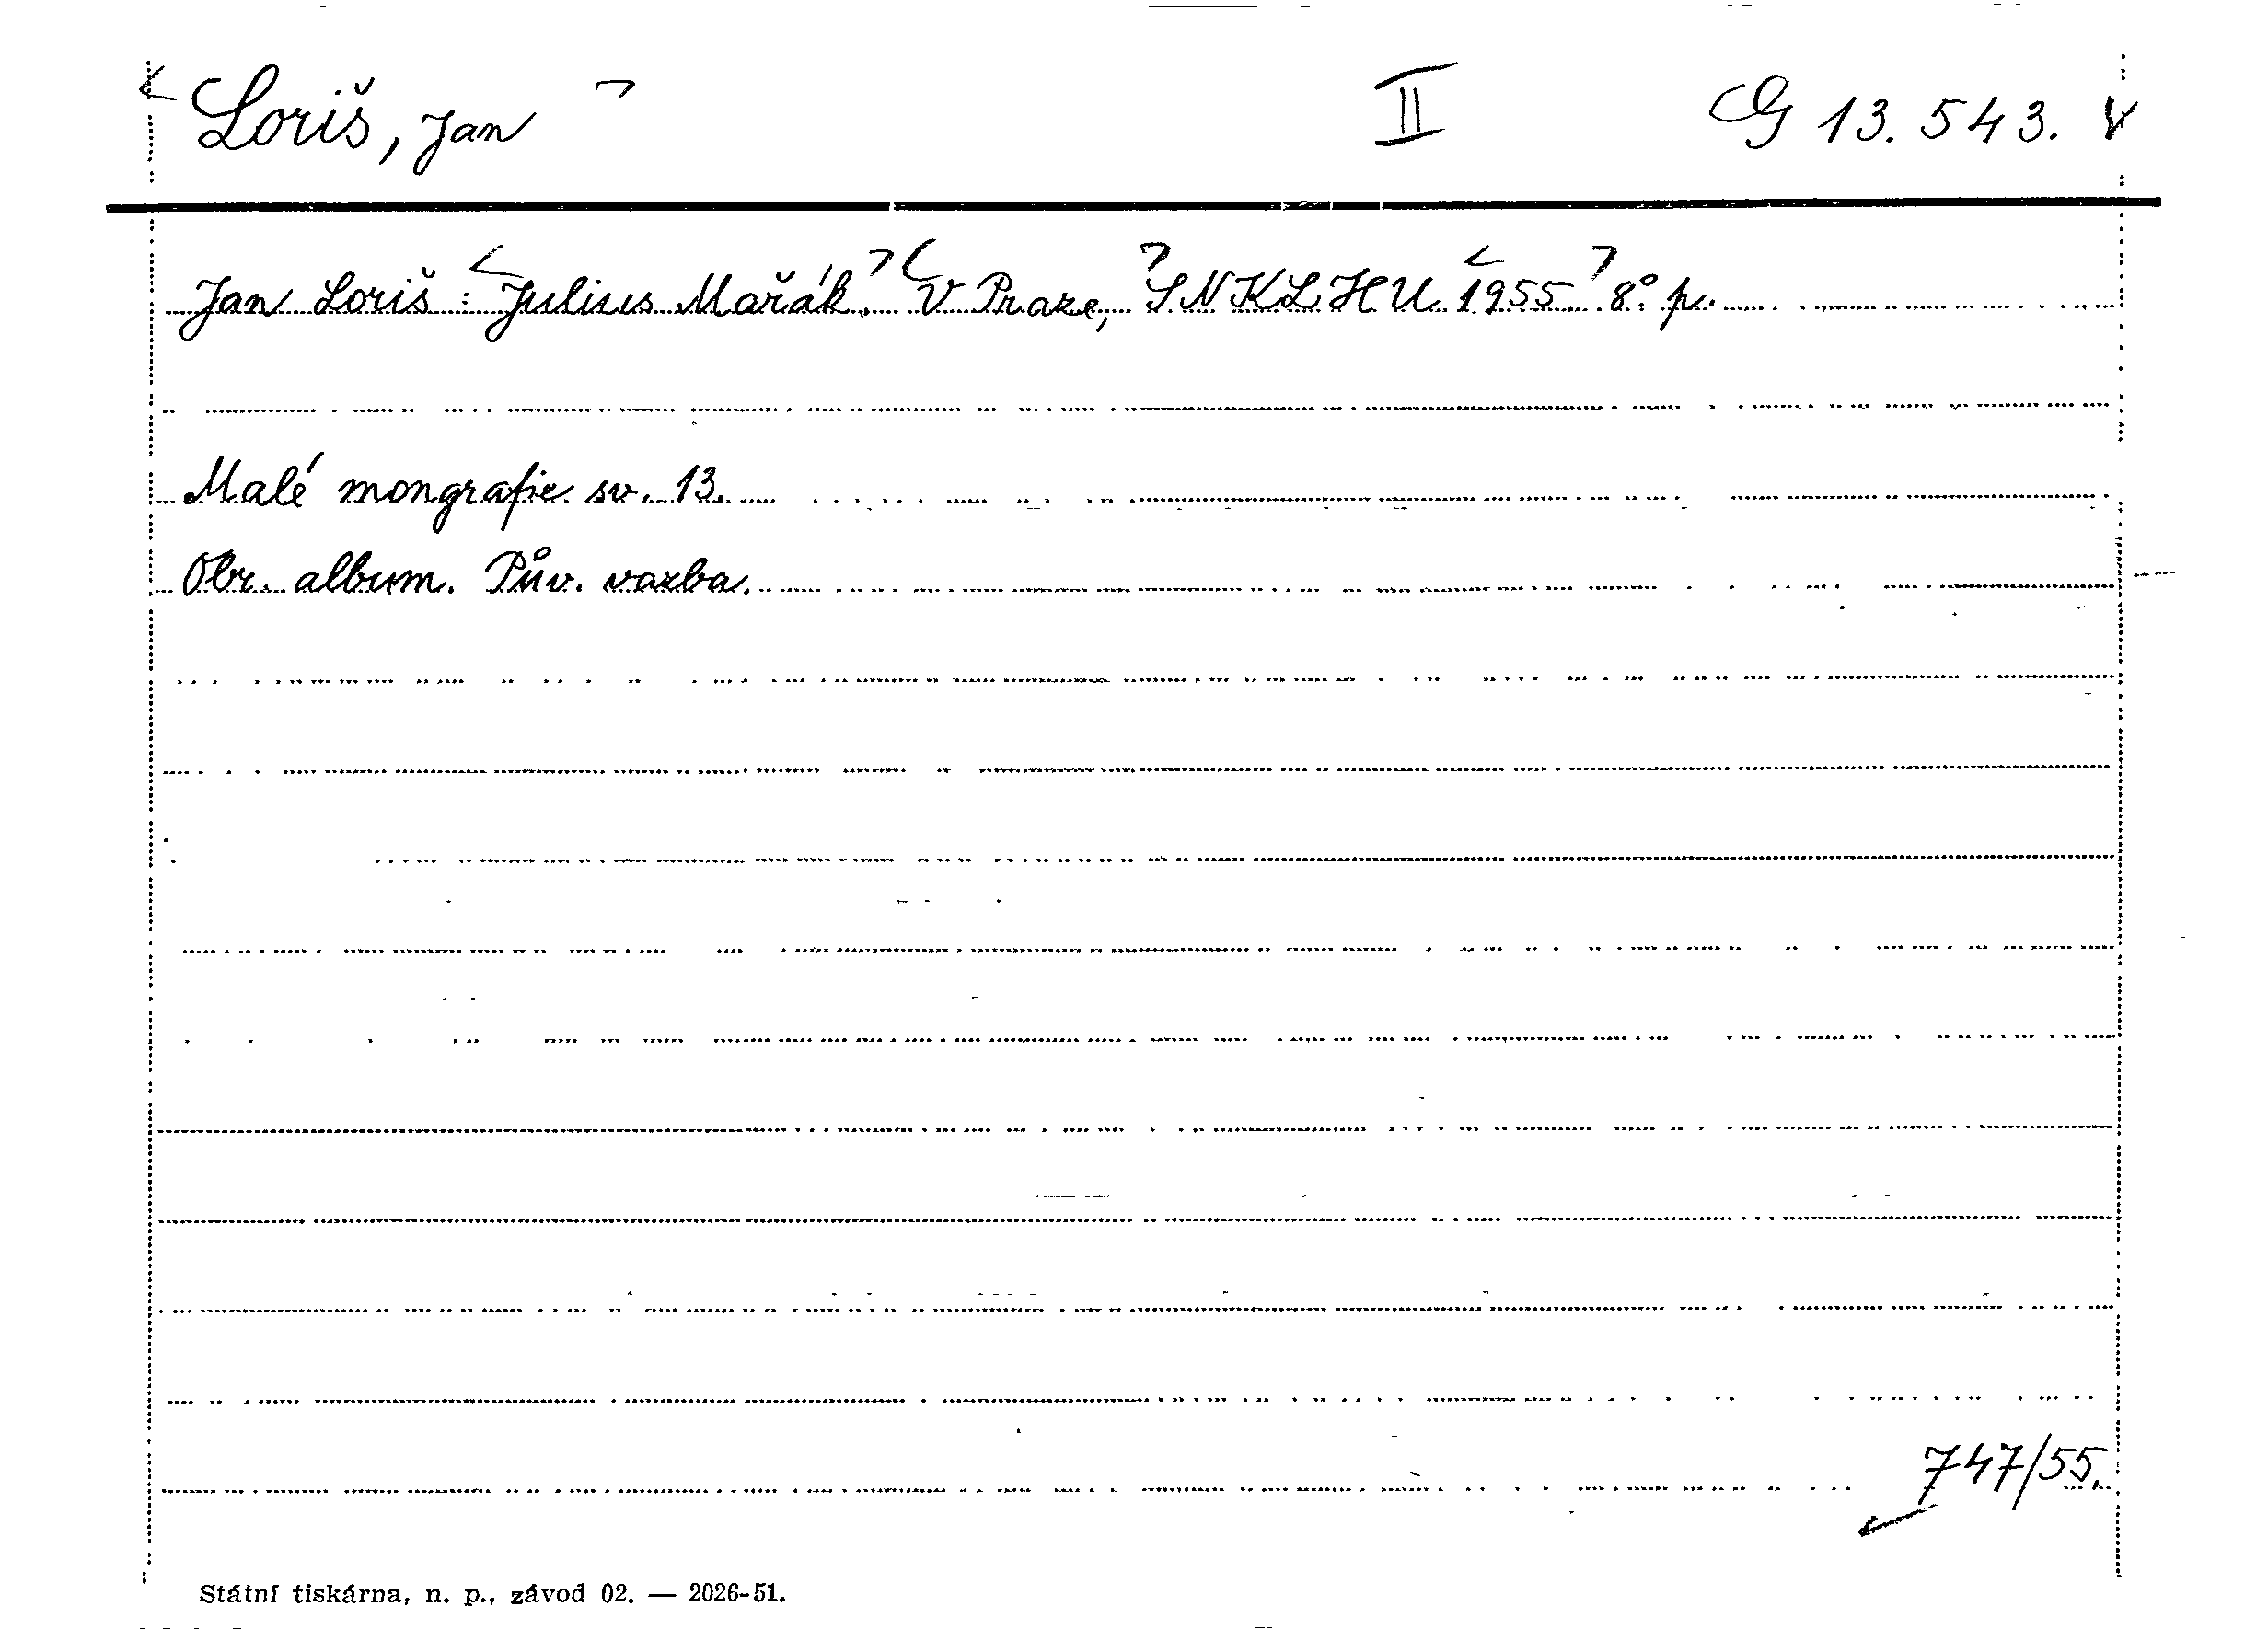 Loriš, Jan II G 13.543.
Jan Loriš: Julius Mařák. V Praze, SNKLHU 1955. 8° p.
Malé mongrafie sv. 13.
Obr. album. Pův. vazba.
747/55.
Státní tiskárna, n. p., závod 02. — 2026-51.